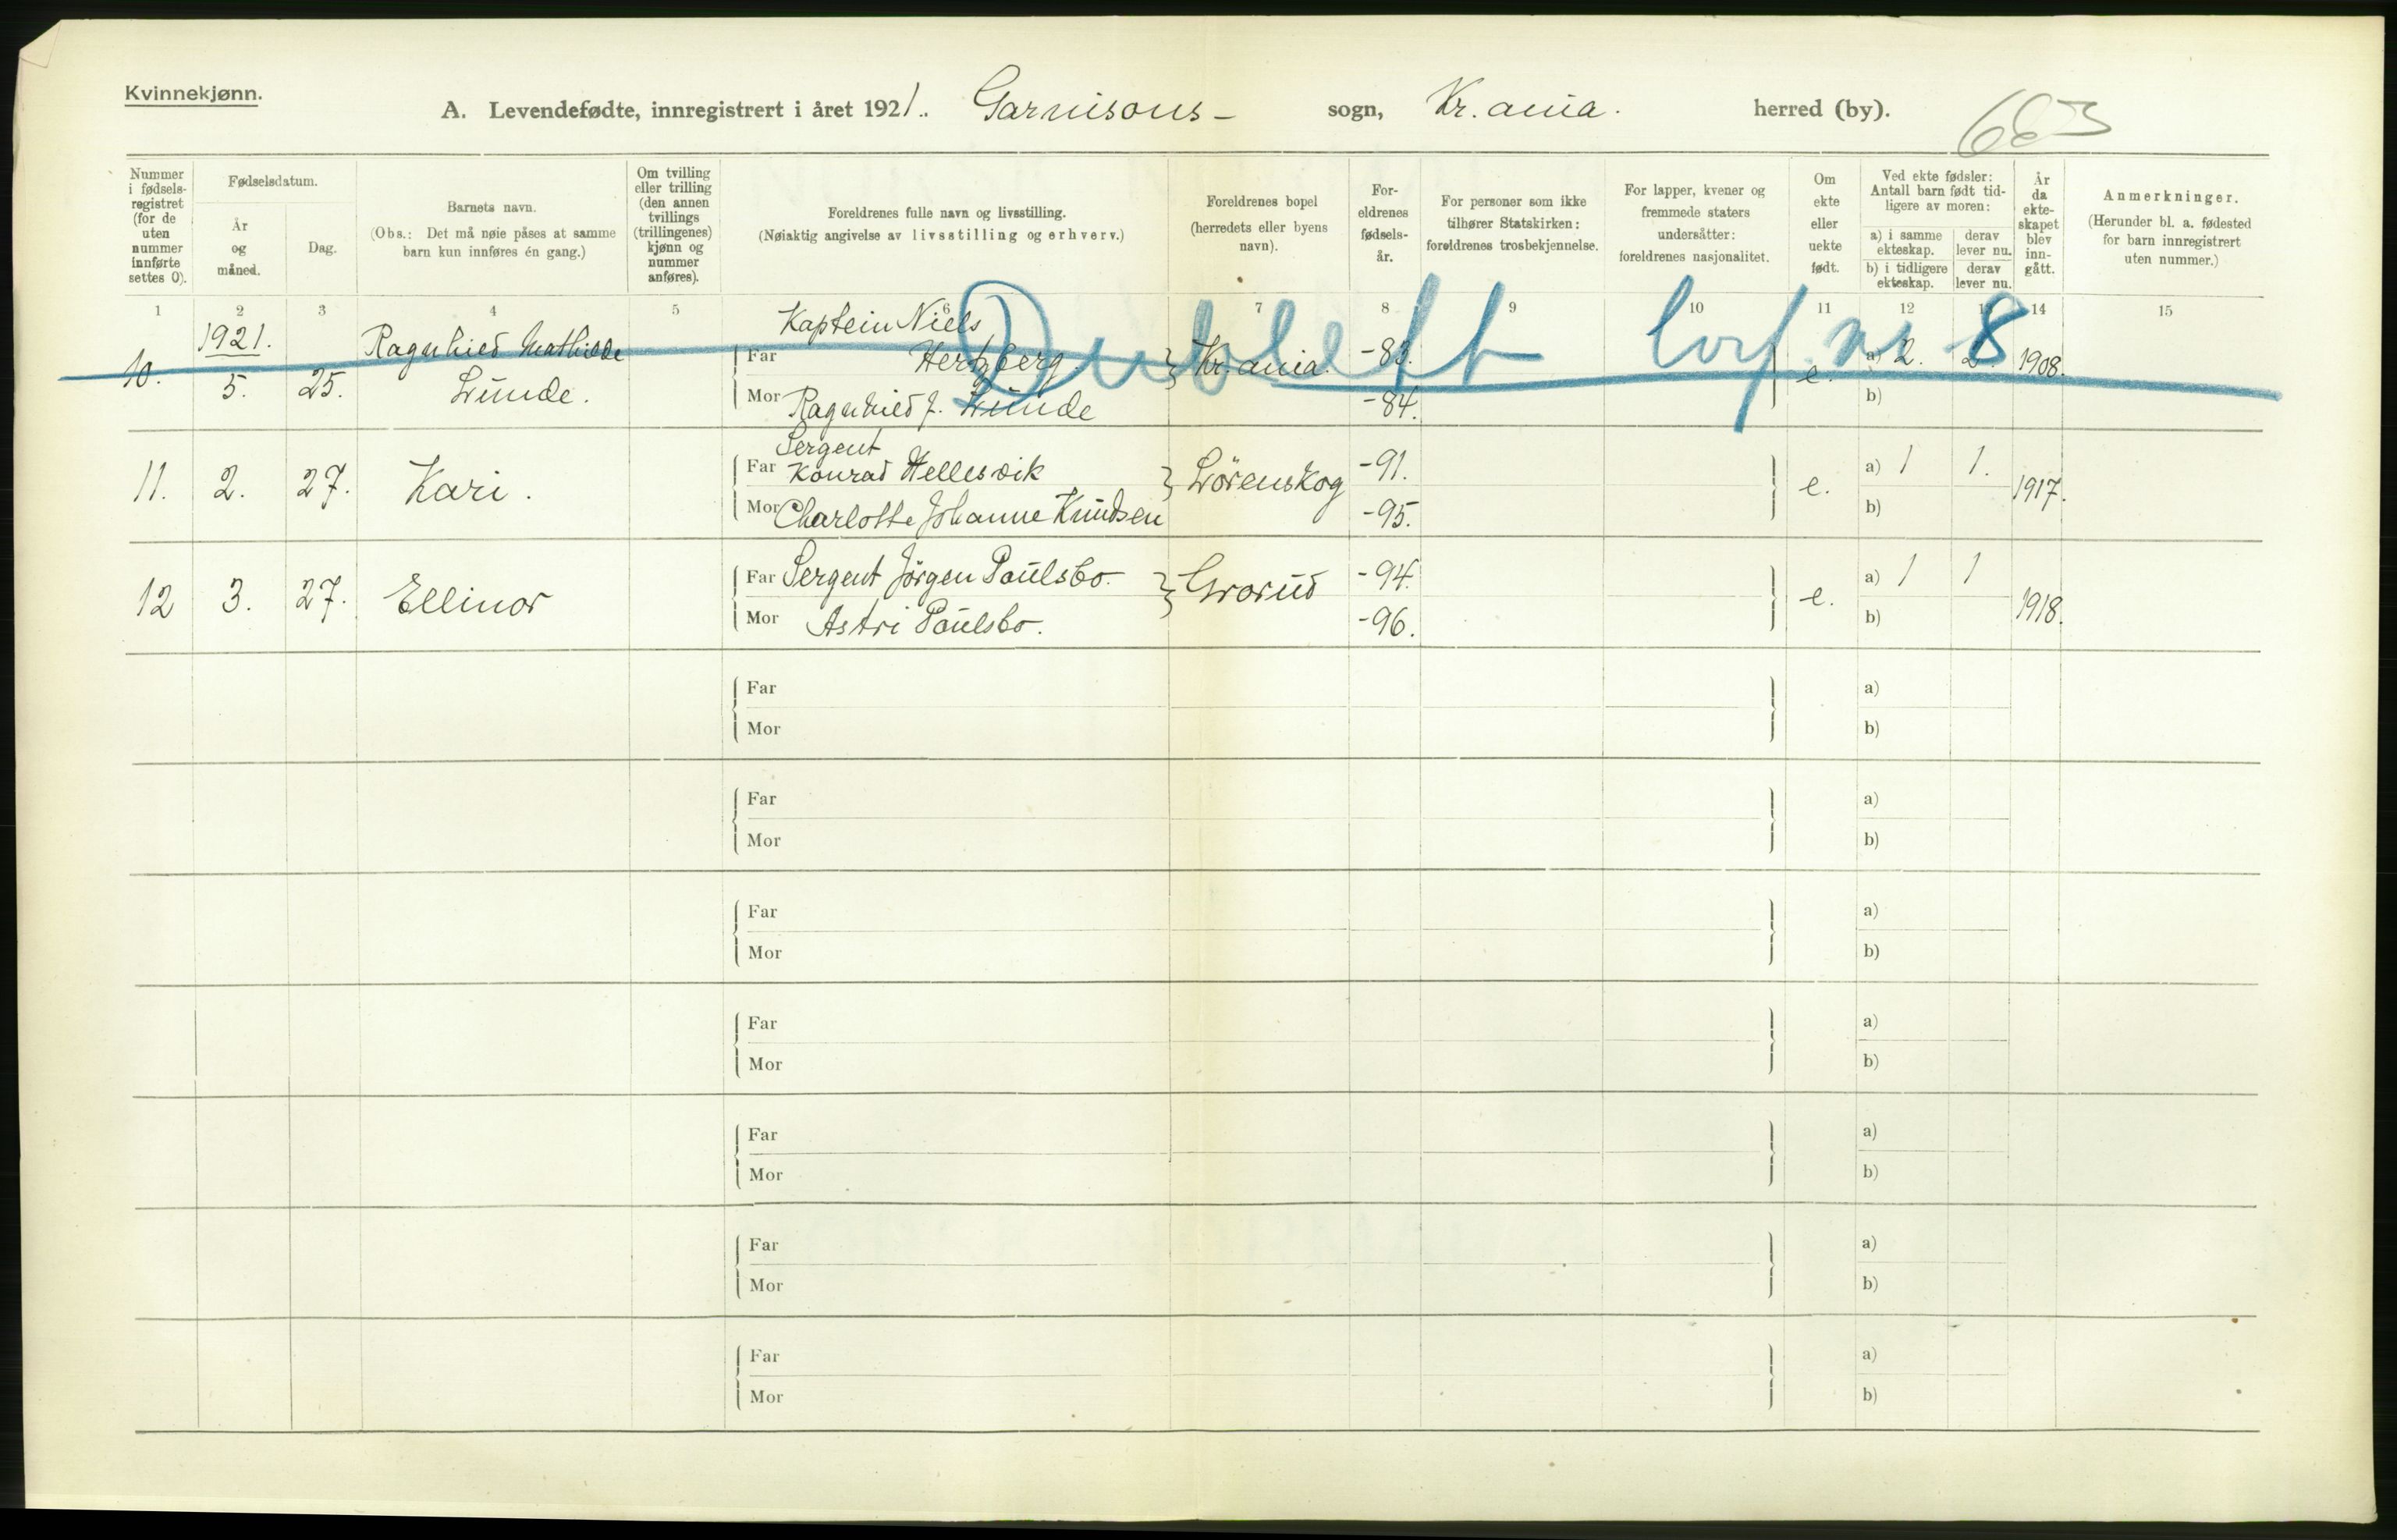 Kvinnekjønn.
A. Levendefødte, innregistrert i året 1921. Garnisons- sogn, Kr.ania. herred (by). 663
Nummer i fødsels-registret (for de uten nummer innførte settes 0).
Fødselsdatum.
År og måned.
Dag.
Barnets navn.
(Obs.: Det må nøie påses at samme barn kun innføres én gang.)
Om tvilling eller trilling (den annen tvillings (trillingenes) kjønn og nummer anføres).
Foreldrenes fulle navn og livsstilling.
(Nøiaktig angivelse av livsstilling og erhverv.)
Foreldrenes bopel (herredets eller byens navn).
For-eldrenes fødsels-år.
For personer som ikke tilhører Statskirken: foreldrenes trosbekjennelse.
For lapper, kvener og fremmede staters undersåtter: foreldrenes nasjonalitet.
Om ekte eller uekte født.
Ved ekte fødsler: Antall barn født tid-ligere av moren:
a) i samme ekteskap.
derav lever nu.
b) i tidligere ekteskap.
derav lever nu.
År da ekte-skapet blev inn-gått.
Anmerkninger.
(Herunder bl. a. fødested for barn innregistrert uten nummer.)
1 2 3 4 5 6 7 8 9 10 11 12 13 14 15
Dublett lovf nr 8
1921.
10. 5. 25. Ragnhild Mathilde Lunde.
Kaptein Niels
Far Hertzberg. Kr.ania. -83. e. a) 2. 2. 1908.
Mor Ragnhild f. Lunde -84. b)
11. 2. 27. Kari.
Sergent
Far Konrad Hellesvik Lörenskog -91. e. a) 1 1. 1917.
Mor Charlotte Johanne Knudsen -95. b)
12 3. 27. Ellinor
Far Sergent Jörgen Paulsbo. Grorud -94. e. a) 1 1 1918.
Mor Astri Paulsbo. -96. b)
Far a)
Mor b)
Far a)
Mor b)
Far a)
Mor b)
Far a)
Mor b)
Far a)
Mor b)
Far a)
Mor b)
Far a)
Mor b)